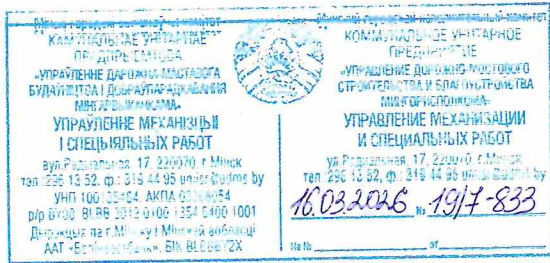 КАМУНАЛЬНАЕ УНІТАРНАЕ
ПРАДПРЫЕМСТВА
«УПРАЎЛЕННЕ ДАРОЖНА-МАСТАВОГА
БУДАЎНІЦТВА І ДОБРАЎПАРАДКАВАННЯ
МІНГАРВЫКАНКАМА»
УПРАЎЛЕННЕ МЕХАНІЗАЦЫІ
І СПЕЦЫЯЛЬНЫХ РАБОТ
вул. Радыяльная, 17, 220070, г. Мінск
тэл. 296 13 52, ф.: 319 44 95
УНП АКПА
р/р
Дырэкцыя па г. Мінску і Мінскай вобласці
ААТ «Белінвестбанк», БІК
Минский городской исполнительный комитет
КОММУНАЛЬНОЕ УНИТАРНОЕ
ПРЕДПРИЯТИЕ
«УПРАВЛЕНИЕ ДОРОЖНО-МОСТОВОГО
СТРОИТЕЛЬСТВА И БЛАГОУСТРОЙСТВА
МИНГОРИСПОЛКОМА»
УПРАВЛЕНИЕ МЕХАНИЗАЦИИ
И СПЕЦИАЛЬНЫХ РАБОТ
ул. Радиальная, 17, 220070, г. Минск
тел.: 296 13 52, ф.: 319 44 95
16.03.2026 № 19/7-833
На № от